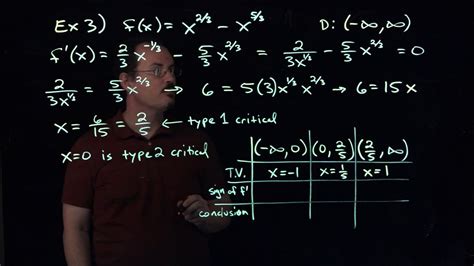 Ex 3) f(x) = x^{2/3} - x^{5/3} D: (-∞, ∞)
f'(x) = 2/3 x^{-1/3} - 5/3 x^{2/3} = 2/(3x^{1/3}) - 5/3 x^{2/3} = 0
2/(3x^{1/3}) = 5/3 x^{2/3} → 6 = 5(3) x^{1/3} x^{2/3} → 6 = 15x
x = 6/15 = 2/5 ← type 1 critical
x=0 is type 2 critical
(-∞, 0) (0, 2/5) (2/5, ∞)
T.V. x=-1 x=1/5 x=1
sign of f'
conclusion